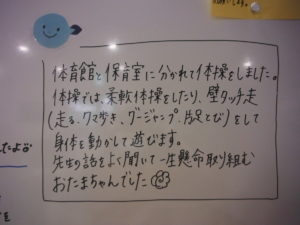 体育館と保育室に分かれて体操をしました。
体操では、柔軟体操をしたり、壁タッチ走
(走る、クマ歩き、グージャンプ、片足とび)をして
身体を動かして遊びます。
先生の話をよく聞いて一生懸命取り組む
おたまちゃんでした
たよ